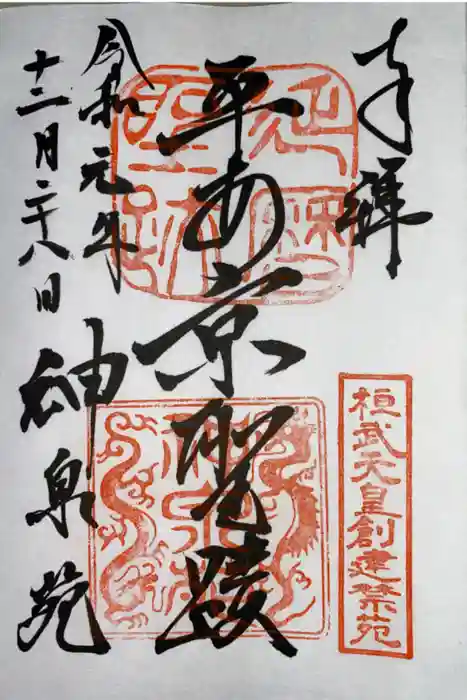 奉拝
桓武天皇創建禁苑
平安京聖蹟
令和元年
十二月二十八日
神泉苑